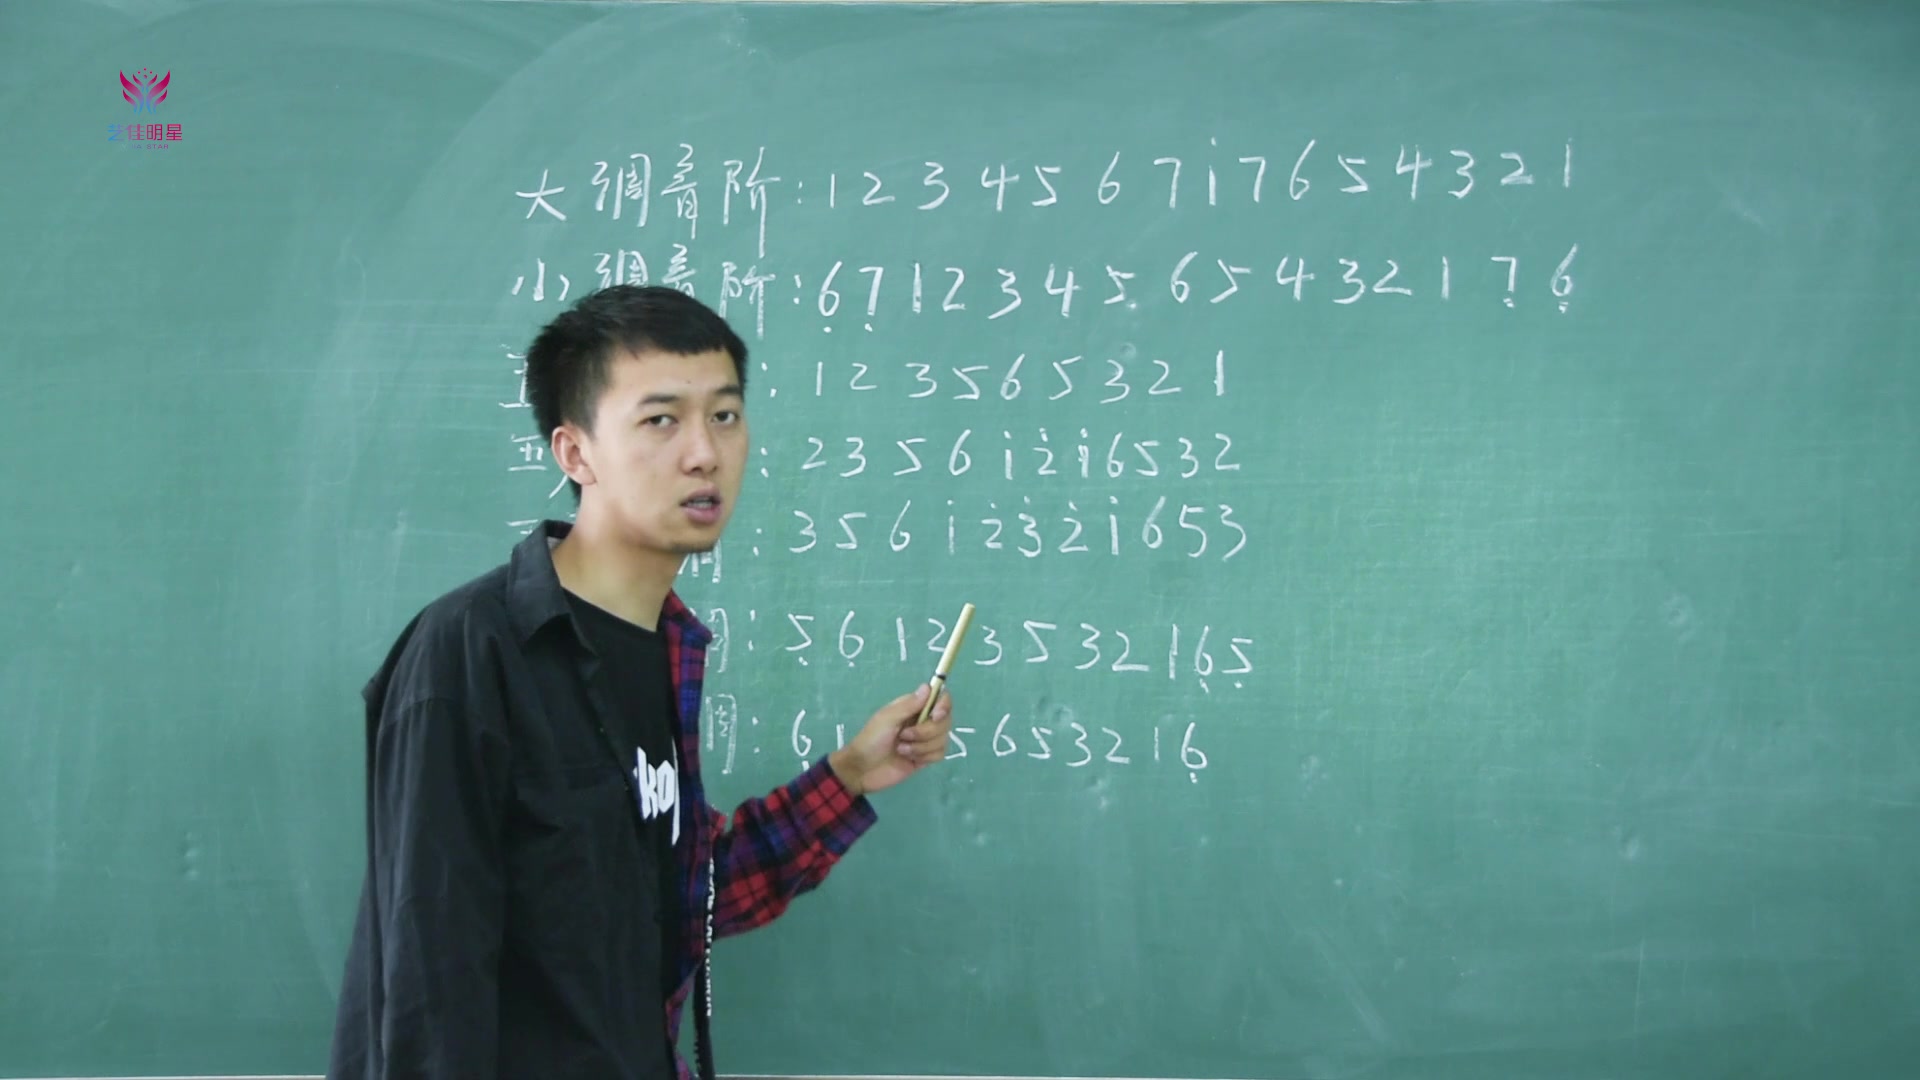 艺佳明星
大调音阶:1 2 3 4 5 6 7 i 7 6 5 4 3 2 1
小调音阶:6̣ 7̣ 1 2 3 4 5 6 5 4 3 2 1 7̣ 6̣
: 1 2 3 5 6 5 3 2 1
五 : 2 3 5 6 i 2̇ i 6 5 3 2
调: 3 5 6 i 2̇ 3̇ 2̇ i 6 5 3
调: 5̣ 6̣ 1 2 3 5 3 2 1 6̣ 5̣
调: 6̣ 1 5 6 5 3 2 1 6̣